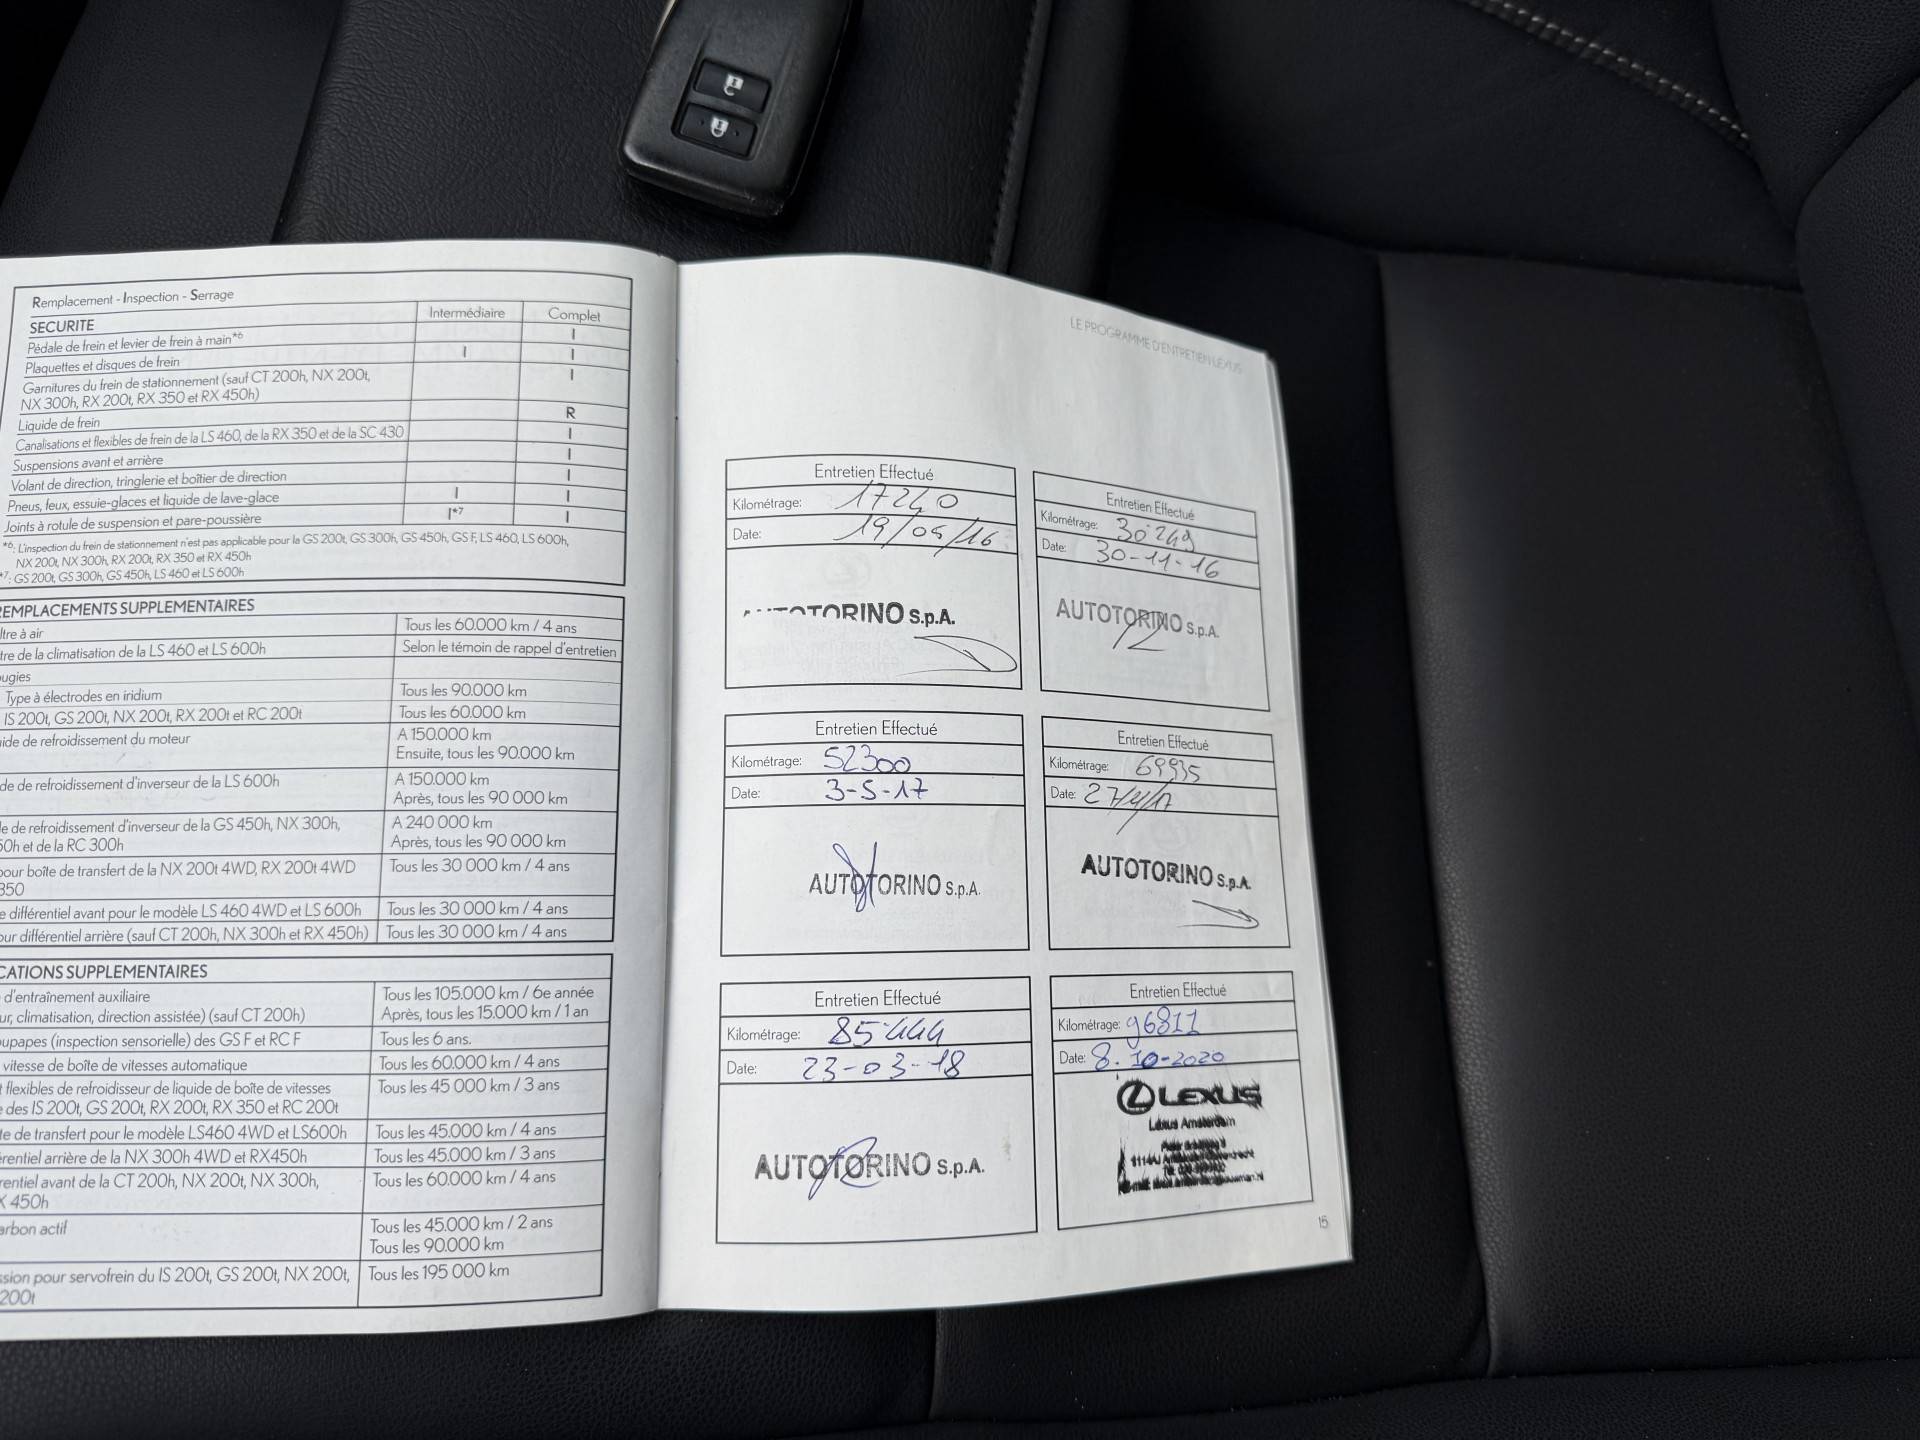 Remplacement - Inspection - Serrage
SECURITE Intermédiaire Complet
Pédale de frein et levier de frein à main*6 I
Plaquettes et disques de frein I I
Garnitures du frein de stationnement (sauf CT 200h, NX 200t, I
NX 300h, RX 200t, RX 350 et RX 450h)
Liquide de frein R
Canalisations et flexibles de frein de la LS 460, de la RX 350 et de la SC 430 I
Suspensions avant et arrière I
Volant de direction, tringlerie et boîtier de direction I
Pneus, feux, essuie-glaces et liquide de lave-glace I I
Joints à rotule de suspension et pare-poussière I*7 I
*6: L'inspection du frein de stationnement n'est pas applicable pour la GS 200t, GS 300h, GS 450h, GS F, LS 460, LS 600h,
NX 200t, NX 300h, RX 200t, RX 350 et RX 450h
*7: GS 200t, GS 300h, GS 450h, LS 460 et LS 600h
EMPLACEMENTS SUPPLEMENTAIRES
ltre à air Tous les 60.000 km / 4 ans
tre de la climatisation de la LS 460 et LS 600h Selon le témoin de rappel d'entretien
ugies
Type à électrodes en iridium Tous les 90.000 km
IS 200t, GS 200t, NX 200t, RX 200t et RC 200t Tous les 60.000 km
ide de refroidissement du moteur A 150.000 km
Ensuite, tous les 90.000 km
de de refroidissement d'inverseur de la LS 600h A 150.000 km
Après, tous les 90 000 km
le de refroidissement d'inverseur de la GS 450h, NX 300h, A 240 000 km
50h et de la RC 300h Après, tous les 90 000 km
pour boîte de transfert de la NX 200t 4WD, RX 200t 4WD Tous les 30 000 km / 4 ans
350
e différentiel avant pour le modèle LS 460 4WD et LS 600h Tous les 30 000 km / 4 ans
our différentiel arrière (sauf CT 200h, NX 300h et RX 450h) Tous les 30 000 km / 4 ans
CATIONS SUPPLEMENTAIRES
d'entraînement auxiliaire Tous les 105.000 km / 6e année
ur, climatisation, direction assistée) (sauf CT 200h) Après, tous les 15.000 km / 1 an
oupapes (inspection sensorielle) des GS F et RC F Tous les 6 ans.
vitesse de boîte de vitesses automatique Tous les 60.000 km / 4 ans
t flexibles de refroidisseur de liquide de boîte de vitesses Tous les 45 000 km / 3 ans
e des IS 200t, GS 200t, RX 200t, RX 350 et RC 200t
te de transfert pour le modèle LS460 4WD et LS600h Tous les 45.000 km / 4 ans
érentiel arrière de la NX 300h 4WD et RX450h Tous les 45.000 km / 3 ans
rentiel avant de la CT 200h, NX 200t, NX 300h, Tous les 60.000 km / 4 ans
X 450h
arbon actif Tous les 45.000 km / 2 ans
Tous les 90.000 km
ssion pour servofrein du IS 200t, GS 200t, NX 200t, Tous les 195 000 km
200t
LE PROGRAMME D'ENTRETIEN LEXUS
Entretien Effectué
Kilométrage: 17240
Date: 19/05/16
AUTOTORINO S.p.A.
Entretien Effectué
Kilométrage: 30249
Date: 30-11-16
AUTOTORINO S.p.A.
Entretien Effectué
Kilométrage: 52300
Date: 3-5-17
AUTOTORINO S.p.A.
Entretien Effectué
Kilométrage: 69935
Date: 27/11/17
AUTOTORINO S.p.A.
Entretien Effectué
Kilométrage: 85444
Date: 23-03-18
AUTOTORINO S.p.A.
Entretien Effectué
Kilométrage: 96811
Date: 8.10-2020
LEXUS
Lexus Amsterdam
15